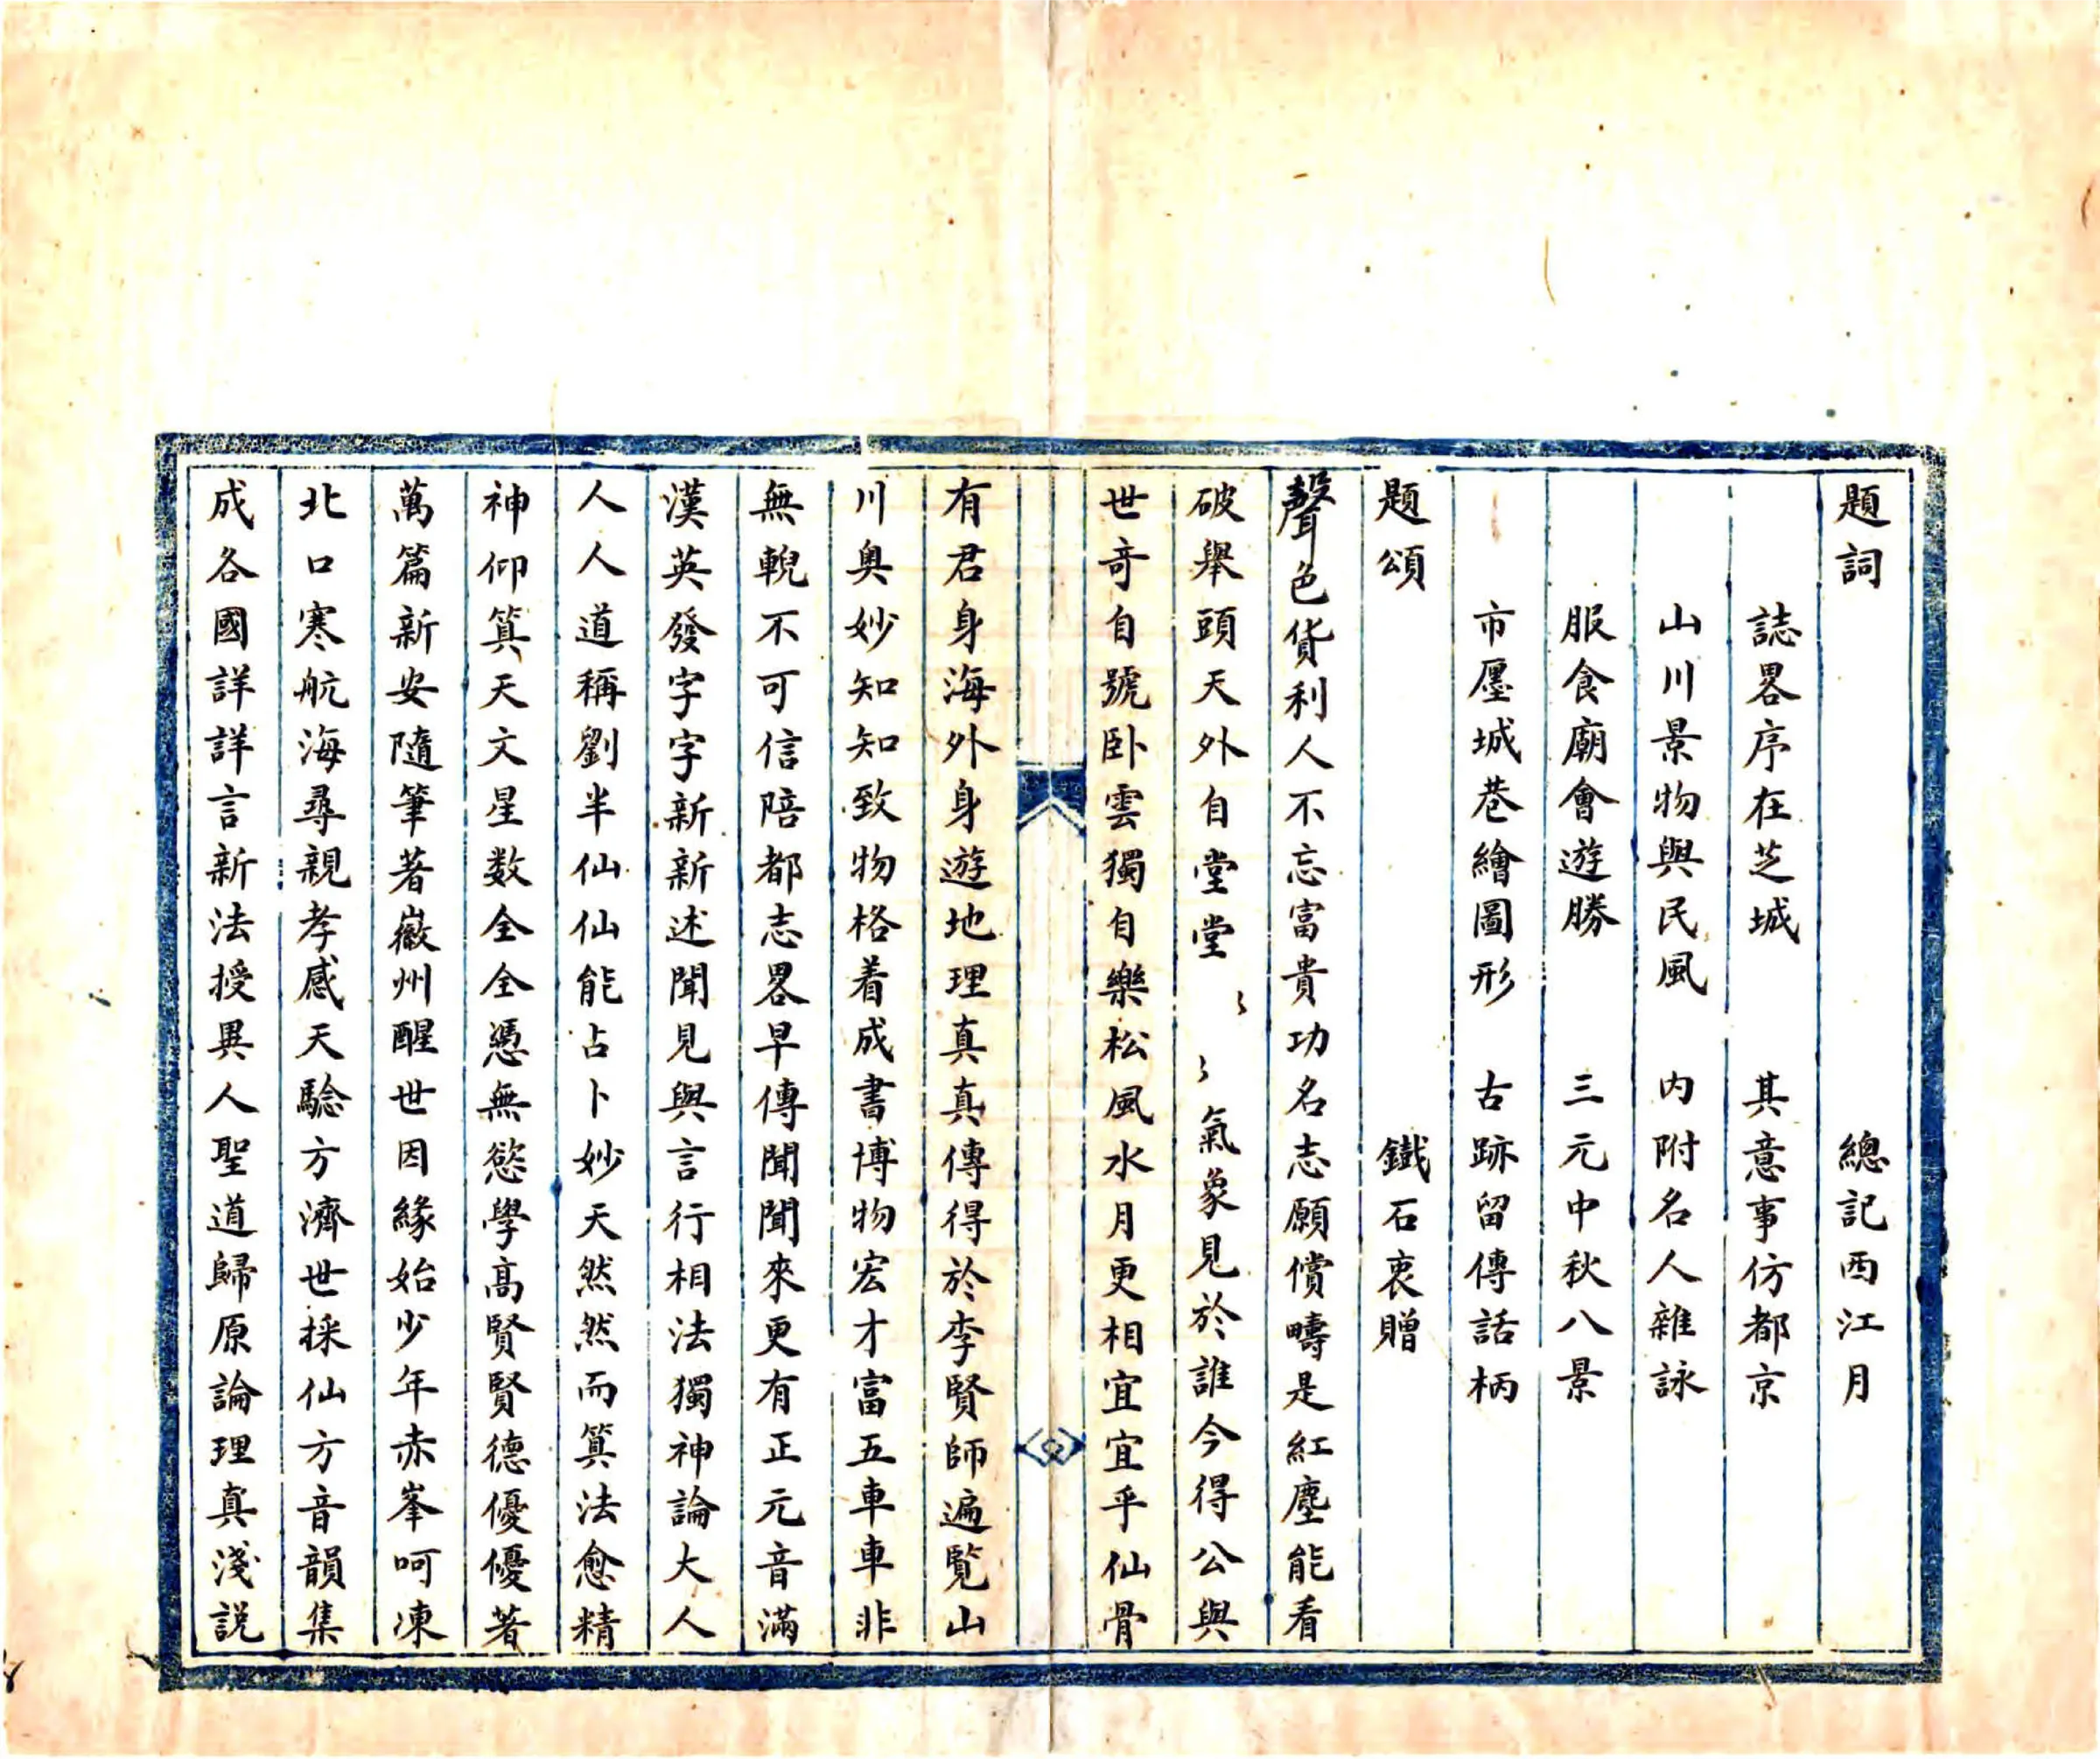 題詞　總記西江月
誌畧序在芝城　其意事仿都京
山川景物與民風　内附名人雜詠
服食廟會遊勝　三元中秋八景
市廛城巷繪圖形　古跡留傳話柄
題頌　鐵石衷贈
聲色貨利人不忘富貴功名志願償疇是紅塵能看
破舉頭天外自堂堂〻〻氣象見於誰今得公與
世竒自號卧雲獨自樂松風水月更相宜宜乎仙骨
有君身海外身遊地理真真傳得於李賢師遍覧山
川奥妙知知致物格着成書博物宏才富五車車非
無輗不可信陪都志畧早傳聞聞來更有正元音滿
漢英發字字新新述聞見與言行相法獨神論大人
人人道稱劉半仙仙能占卜妙天然然而筭法愈精
神仰筭天文星数全全憑無慾學高賢賢德優優著
萬篇新安隨筆著徽州醒世因緣始少年赤峯呵凍
北口寒航海尋親孝感天驗方濟世採仙方音韻集
成各國詳詳言新法授異人聖道歸原論理真淺説